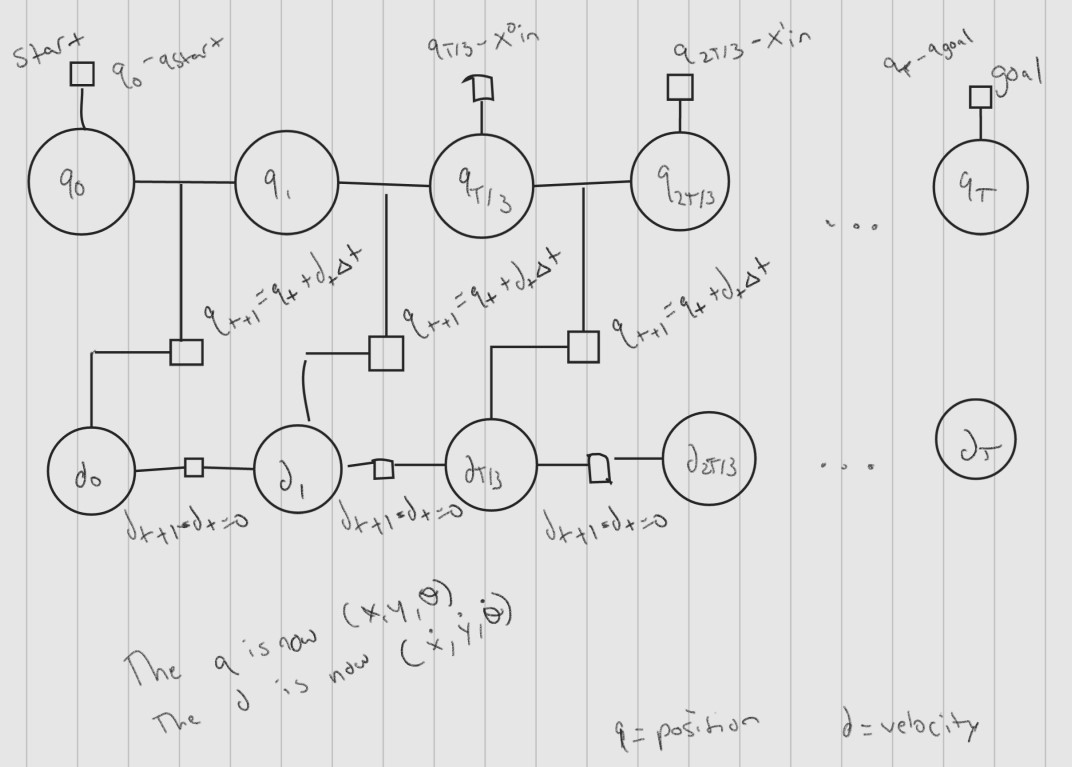 start
q₀-qstart
qT/3-x⁰in
q2T/3-x'in
qT-qgoal
goal
q₀
q₁
qT/3
q2T/3
...
qT
qt+1=qt+dtΔt
qt+1=qt+dtΔt
qt+1=qt+dtΔt
d₀
d₁
dT/3
d2T/3
...
dT
dt+1-dt=0
dt+1-dt=0
dt+1-dt=0
The q is now (x,y,θ)
The d is now (ẋ,ẏ,θ̇)
q= position
d= velocity